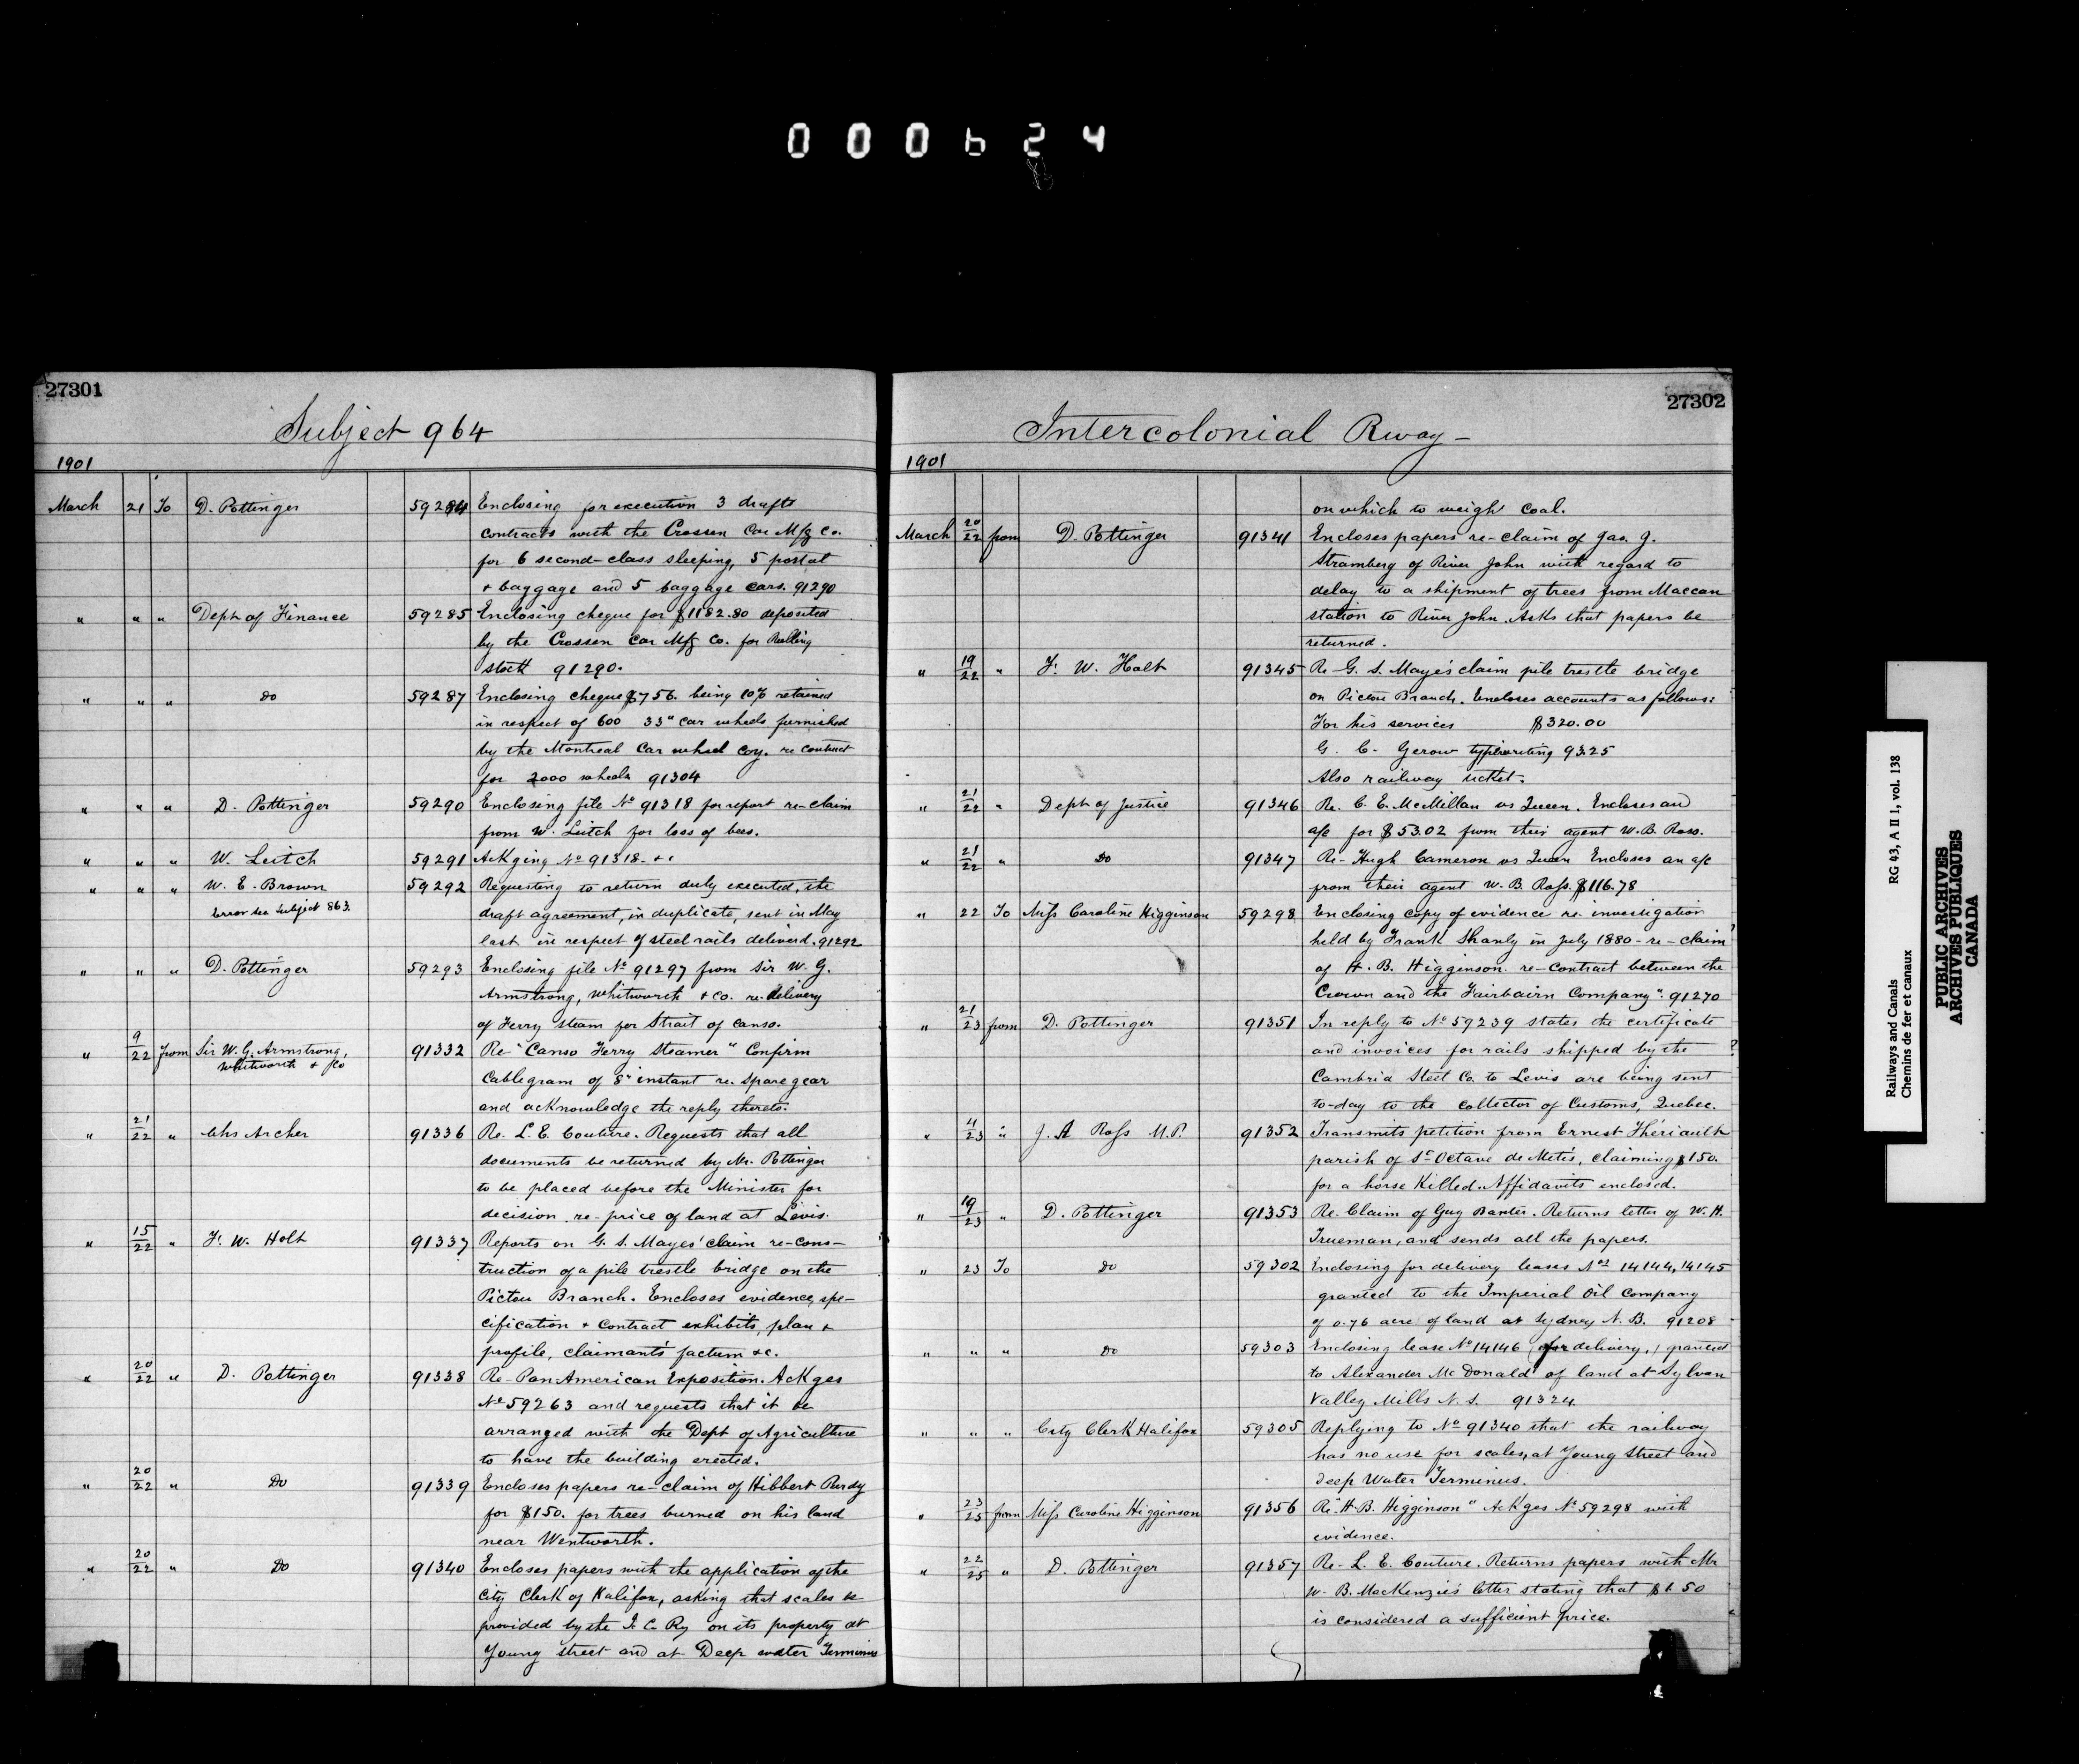 000624
27301
Subject 964
1901
March 21 To D. Pottinger 59284 Enclosing for execution 3 drafts
contracts with the Crossen Car Mfg Co.
for 6 second-class sleeping, 5 postal
+ baggage and 5 baggage cars. 91290
" " " Dept of Finance 59285 Enclosing cheque for $1182.80 deposited
by the Crossen Car Mfg Co. for Rolling
stock 91290.
" " " Do 59287 Enclosing cheque $756. being 10% retained
in respect of 600 33" car wheels furnished
by the Montreal Car wheel Coy. re contract
for 2000 wheels 91304
" " " D. Pottinger 59290 Enclosing file No 91318 for report re-claim
from W. Leitch for loss of bees.
" " " W. Leitch 59291 Ackging No 91318 - &c
" " " W. E. Brown 59292 Requesting to return duly executed, the
Error see Subject 863. draft agreement, in duplicate, sent in May
last in respect of steel rails deliverd. 91292
" " " D. Pottinger 59293 Enclosing file No 91297 from Sir W. G.
Armstrong, Whitworth + Co. re-delivery
of Ferry steam for Strait of Canso.
" 9/22 from Sir W. G. Armstrong, 91332 Re "Canso Ferry Steamer" Confirm
Whitworth + Co
Cablegram of 8" instant re. spare gear
and acknowledge the reply thereto.
" 21/22 " Chs Archer 91336 Re. L. E. Couture. Requests that all
documents be returned by Mr. Pottinger
to be placed before the Minister for
decision re-price of land at Lévis.
" 15/22 " F. W. Holt 91337 Reports on G. S. Mayes' claim re-cons-
truction of a pile trestle bridge on the
Pictou Branch. Encloses evidence, spe-
cification + contract exhibits, plan +
profile, claimant's factum &c.
" 20/22 " D. Pottinger 91338 Re-Pan-American Exposition. Ackges
No 59263 and requests that it be
arranged with the Dept of Agriculture
to have the building erected.
" 20/22 " Do 91339 Encloses papers re-claim of Hibbert Purdy
for $150. for trees burned on his land
near Wentworth.
" 20/22 " Do 91340 Encloses papers with the application of the
City Clerk of Halifax, asking that scales be
provided by the I. C. Ry on its property at
Young street and at Deep water Terminus
27302
Intercolonial Rway -
1901
on which to weigh coal.
March 20/22 from D. Pottinger 91341 Encloses papers re-claim of Jas. J.
Stramberg of River John with regard to
delay to a shipment of trees from Maccan
station to River John. Asks that papers be
returned.
" 19/22 " F. W. Holt 91345 Re G. S. Mayes' claim pile trestle bridge
on Pictou Branch. Encloses accounts as follows:
For his services $320.00
G. C. Gerow typewriting 93.25
Also railway ticket.
" 21/22 " Dept of Justice 91346 Re. C. E. McMillan vs Queen. Encloses an
a/c for $53.02 from their agent W. B. Ross.
" 21/22 " Do 91347 Re-Hugh Cameron vs Queen Encloses an a/c
from their agent W. B. Ross. $116.78
" 22 To Miss Caroline Higginson 59298 Enclosing copy of evidence re-investigation
held by Frank Shanly in July 1880 - re-claim
of H. B. Higginson re-contract between the
Crown and the Fairbairn Company". 91270
" 21/23 from D. Pottinger 91351 In reply to No 59239 states the certificate
and invoices for rails shipped by the
Cambria Steel Co. to Levis are being sent
to-day to the Collector of Customs, Quebec.
" 4/23 " J. A Ross M.P. 91352 Transmits petition from Ernest Thériault
parish of St Octave de Métis, claiming $150.
for a horse Killed. Affidavits enclosed.
" 19/23 " D. Pottinger 91353 Re. Claim of Guy Banter. Returns letter of W. H.
Trueman, and sends all the papers.
" 23 To Do 59302 Enclosing for delivery leases Nos 14144, 14145
granted to the Imperial Oil Company
of 0.76 acre of land at Sydney N. B. 91208
" " " Do 59303 Enclosing lease No 14146 (for delivery,) granted
to Alexander McDonald of land at Sylvan
Valley Mills N. S. 91324
" " " City Clerk Halifax 59305 Replying to No 91340 that the railway
has no use for scales, at Young Street and
Deep Water Terminus.
" 23/25 from Miss Caroline Higginson 91356 Re "H. B. Higginson" Ackges No 59298 with
evidence.
" 22/25 " D. Pottinger 91357 Re-L. E. Couture. Returns papers with Mr
W. B. MacKenzie's letter stating that $1.50
is considered a sufficient price.
Railways and Canals RG 43, A II 1, vol. 138
Chemins de fer et canaux
PUBLIC ARCHIVES
ARCHIVES PUBLIQUES
CANADA